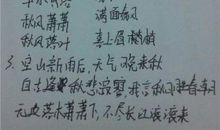 秋风萧萧 满面愁风
秋风落叶 喜上眉梢
3. 空山新雨后，天气晚来秋
自古逢秋悲寂寥 我言秋日胜春朝
无边落木萧萧下，不尽长江滚滚来